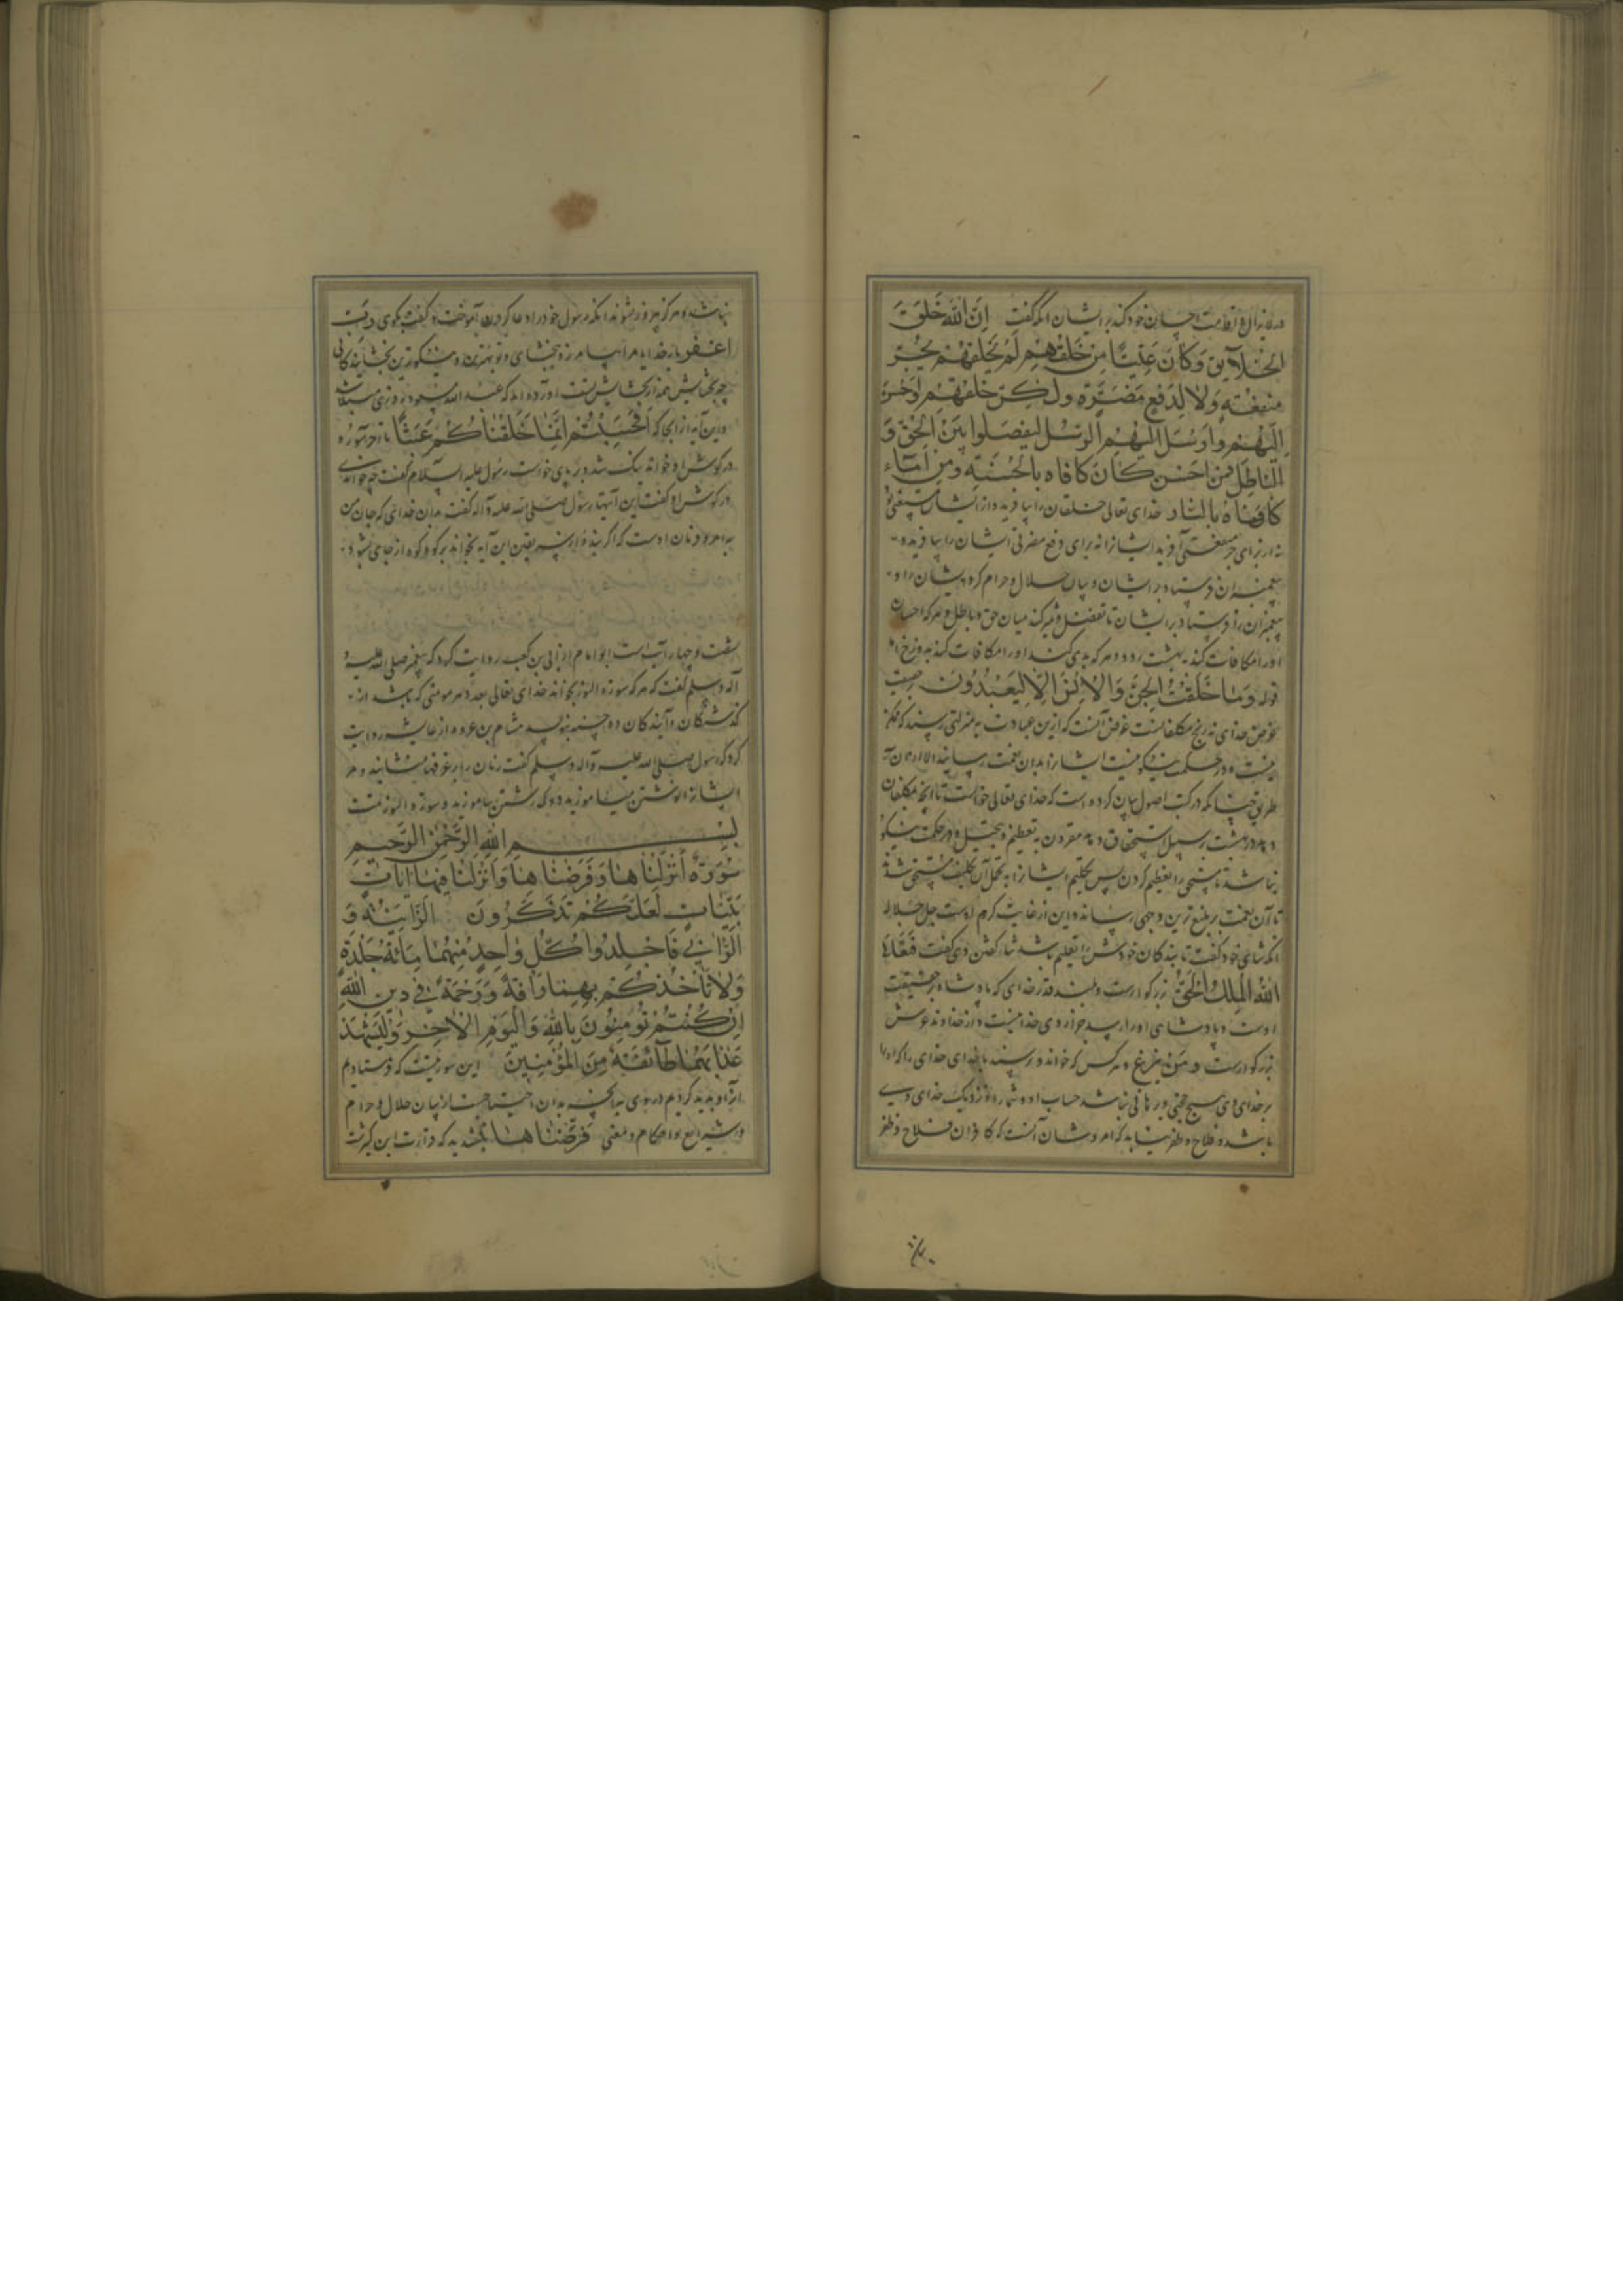 در لایزال و اقامت احسان خود کند بر ایشان آنگه گفت اِنَّ اللهَ خَلَقَ
الخَلآیقَ وَکانَ غَنِیًّا مِن خَلقِهِم لَم یَخلُقهُم لِجَرِّ
مَنفَعَتِهِ وَلا لِدَفعِ مَضَرَّةٍ ولکِن خَلَقَهُم وَاَحسَنَ
اِلَیهِم وَاَرسَلَ اِلَیهِم الرُسُلَ لِیَفصِلُوا بَینَ الحَقِّ وَ
الباطِلِ فَمَن اَحسَنَ کانَ کافاه بالجَنَّةِ وَمَن اَساءَ
کافَاهُ بِالنّار خدای تعالی خلقان را بیافرید و از ایشان مستغنی
نه از برای جر منفعتی آفرید ایشانرا نه برای دفع مضرتی ایشان را بیافرید و
پیغمبران فرستاد بر ایشان و بیان حلال و حرام کرد ایشان را و
پیغمبران را فرستاد بر ایشان تا تفصیل و تمیز کند میان حق و باطل و هر که احسان
او را مکافات کند به بهشت و هر که بدی کند او را مکافات کند به دوزخ
قوله وَمَا خَلَقتُ الجِنَّ وَالاِنسَ اِلّا لِیَعبُدُونِ
غرض خدای نه رنج مکلفانست غرض آنست که ازین عبادت به منزلتی رسند که
نیست و در حکمت نیکو نیست ایشانرا بدان نعمت رسانیدن الا از آن
طریق چنانکه در کتب اصول بیان کرده است که خدای تعالی خواست تا آنچه مکلفان
دهد در بهشت بر سبیل استحقاق دهد مقرون به تعظیم و تبجیل و در حکمت نیکو
نباشد نامستحق را تعظیم کردن پس تکلیم ایشانرا به تحمل آن تکلیف مستحق شدند
تا آن نعمت بر بلیغ ترین وجهی رساند و این از غایت کرم اوست جل جلاله
آنگه ثنای خود گفت تا بندگان خودش را تعلیم باشد ثنا گفتن وی گفت فَتَعَالَی
اللهُ المَلِکُ الحَقُّ بزرگوارست و بلند قدر خدای که پادشاه بحقیقت
اوست و پادشاهی او را رسد جز از وی خدا نیست و او خداوند عرش
بزرگوارست و مَن یَدعُ و هر کس که خواند و پرستد با خدای خدای را که او را
بر خدای وی هیچ حجتی و برهانی نباشد حساب او و شمار او نزدیک خدای وی
باشد و فلاح و ظفر نیابد که امر و شان آنست که کافران فلاح و ظفر
نباشد و هرگز پیروز نشوند آنگه رسول خود را دعا کردن آموخت و گفت بگوی رَبِّ
اغفِر بار خدایا مرا بیامرز و ببخشای و تو بهترین و نیکوترین بخشایندگانی
چه بخشایش همه از بخشایش تست آورده‌اند که عبد الله مسعود روزی مبتلائی
و این آیه از آنجا که اَفَحَسِبتُم اَنَّمَا خَلَقنَاکُم عَبَثًا تا آخر سوره
در گوش او خواند نیک شد و بر پای خواست رسول علیه السلام گفت چه خواندی
در گوش او گفت این آیتها رسول صلی الله علیه و آله گفت بدان خدائی که جان من
به امر و فرمان اوست که اگر بنده از سر یقین این آیه بخواند بر کوه کوه از جای بشود
شصت و چهار آیت است ابو امامه از ابی بن کعب روایت کرد که پیغمبر صلی الله علیه و
آله و سلم گفت که هر که سوره النور بخواند خدای تعالی بعدد هر مومنی که باشد از
گذشتگان و آیندگان ده حسنه بنویسد هشام بن عروه از عایشه روایت
کرد که رسول صلی الله علیه و آله و سلم گفت زنان را بر غرفها منشانید و مر
ایشانرا نوشتن میاموزید و دوک رشتن بیاموزید و سوره النور
بِسمِ اللهِ الرَّحمٰنِ الرَّحیمِ
سُورَةٌ اَنزَلنَاهَا وَفَرَضنَاهَا وَاَنزَلنَا فِیهَا اٰیَاتٍ
بَیِّنَاتٍ لَعَلَّکُم تَذَکَّرُونَ اَلزَّانِیَةُ وَ
الزَّانِی فَاجلِدُوا کُلَّ وَاحِدٍ مِنهُمَا مِائَةَ جَلدَةٍ
وَلَا تَأخُذکُم بِهِمَا رَافَةٌ وَرَحمَةٌ فِی دِینِ اللهِ
اِن کُنتُم تُومِنُونَ بِاللهِ وَالیَومِ الاٰخِرِ وَلیَشهَد
عَذَابَهُمَا طَآئِفَةٌ مِنَ المُؤمِنِینَ این سوره‌ایست که فرستادیم
آنرا و پدید کردیم در وی هر آنچه بدان احتیاجست از بیان حلال و حرام
و شرایع و احکام و معنی فَرَّضنَاهَا بتشدید که قراءت ابن کثیرست